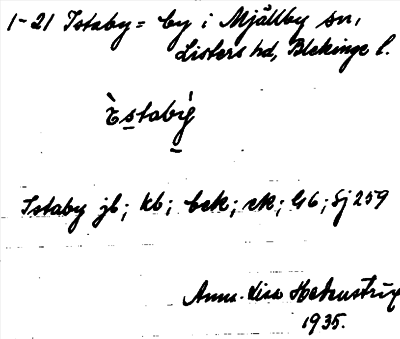 1-21 Istaby = by i Mjällby sn,
Listers hd, Blekinge l.
Istaby jb; kb; bek; ek; G6; Sj 259
Anna-Lisa Hetenstrip
1935.